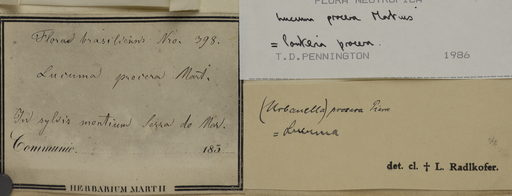 Florae brasiliensis Nro. 398.
Lucuma procera Mart.
In sylvis montium Serra do Mar.
Communic. 183
HERBARIUM MARTII
FLORA NEOTROPICA
Lucuma procera Martius
= Pouteria procera.
T.D. PENNINGTON 1986
(Urbanella) procera Pierre
= Lucuma
det. cl. † L. Radlkofer.